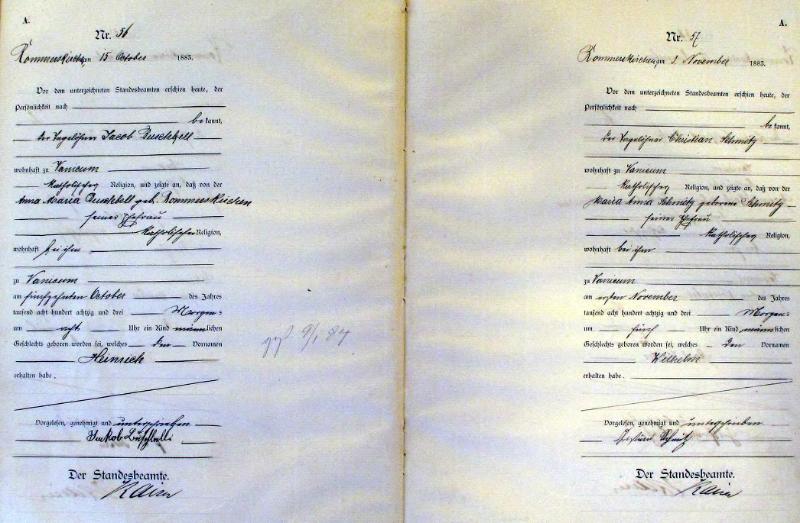 A.
Nr. 56
Rommerskirchen 15 October 1883.
Vor dem unterzeichneten Standesbeamten erschien heute, der
Persönlichkeit nach
bekannt,
der Tagelöhner Jacob
wohnhaft zu Vanicum
katholischer Religion, und zeigte an, daß von der
Anna Maria geb. Rommerskirchen
seiner Ehefrau
katholischer Religion,
wohnhaft bei ihm
zu Vanicum
am fünfzehnten October des Jahres
tausend acht hundert achtzig und drei Morgens
um acht Uhr ein Kind männlichen
Geschlechts geboren worden sei, welches den Vornamen
Heinrich
erhalten habe.
Vorgelesen, genehmigt und unterschrieben
Jakob
Der Standesbeamte.
9/1 84
A.
Nr. 57
Rommerskirchen, 2 November 1883.
Vor dem unterzeichneten Standesbeamten erschien heute, der
Persönlichkeit nach
bekannt,
der Tagelöhner Christian Schmitz
wohnhaft zu Vanicum
katholischer Religion, und zeigte an, daß von der
Maria Anna Schmitz geborene Schmitz
seiner Ehefrau
katholischer Religion,
wohnhaft bei ihm
zu Vanicum
am ersten November des Jahres
tausend acht hundert achtzig und drei Morgens
um fünf Uhr ein Kind männlichen
Geschlechts geboren worden sei, welches den Vornamen
Wilhelm
erhalten habe.
Vorgelesen, genehmigt und unterschrieben
Der Standesbeamte.